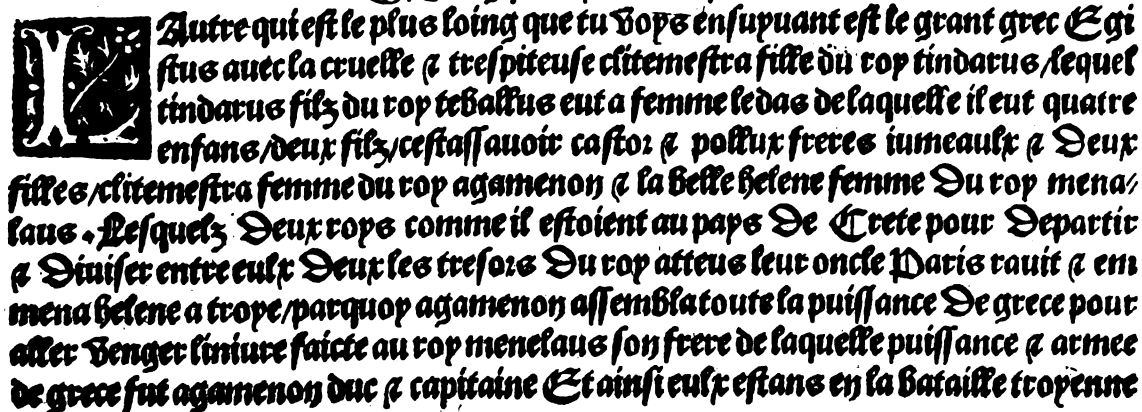 LAutre qui est le plus loing que tu voys ensuyuant est le grant grec Egi
stus auec la cruelle ⁊ trespiteuse clitemestra fille du roy tindarus/lequel
tindarus filz du roy teballus eut a femme ledas de laquelle il eut quatre
enfans/deux filz/cestassauoir castor ⁊ pollux freres iumeaulx ⁊ Deux
filles/clitemestra femme du roy agamenon ⁊ la belle helene femme Du roy mena/
laus. Lesquelz Deux roys comme il estoient au pays De Crete pour Departir
⁊ Diuiser entre eulx Deux les tresors Du roy atteus leur oncle Paris rauit ⁊ em
mena helene a troye/parquoy agamenon assembla toute la puissance De grece pour
aller venger liniure faicte au roy menelaus son frere de laquelle puissance ⁊ armee
de grece fut agamenon duc ⁊ capitaine Et ainsi eulx estans en la bataille troyenne